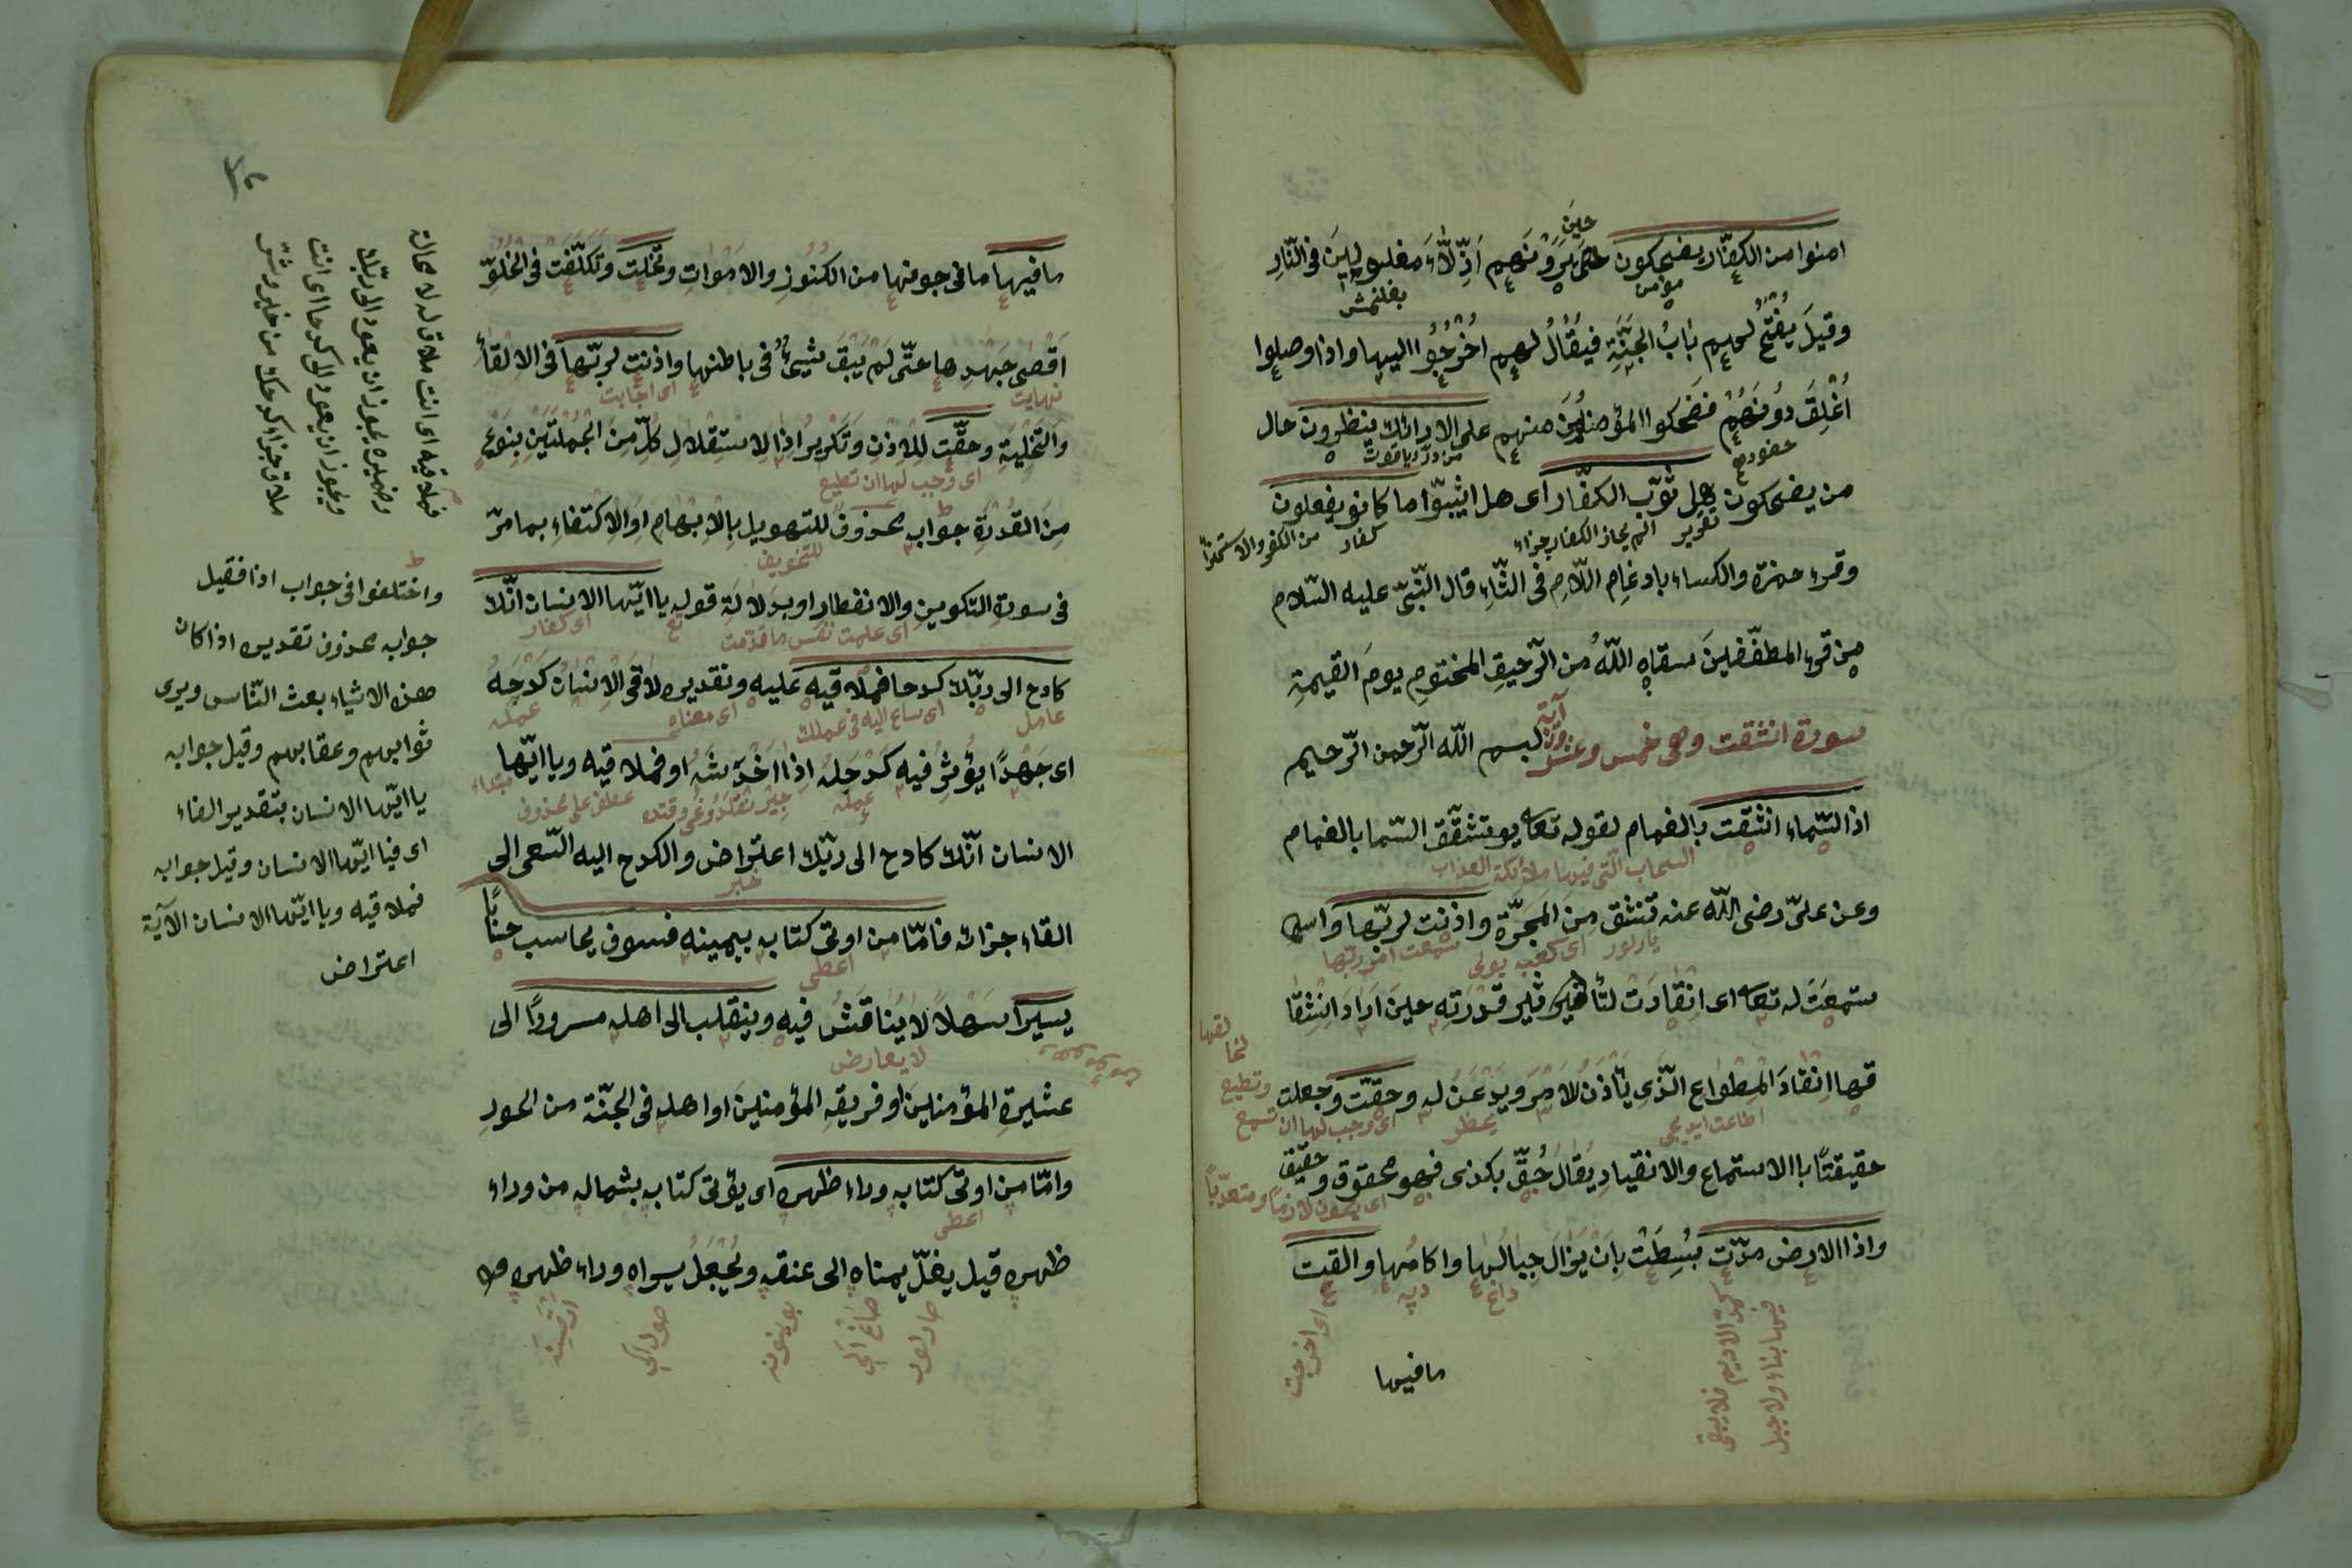 امنوا من الكفّار يضحكون حين يَرَوْنَهم اَذِلّاءَ مغلولينَ فى النّارِ
وقيلَ يُفْتَحُ لهم بابُ الجَنَّةِ فيُقٰالُ لهم اخْرُجُوا اليها واذا وصلوا
اُغْلِقَ دُونَهُمْ فضحكوا المؤمنُونَ منهم على الارائك ينظرون حال
من يضحكون هل ثوّب الكفّار اى هل اثيبوا ما كانو يفعلون
وقرء حمزة والكساء بادغامِ اللّامِ فى الثّاءِ قال النّبىّ عليه السّلام
من قرء المطفّفينَ سقاه اللّهُ من الرّحيقِ المختومِ يومَ القيمةِ
سورة انشقت وهى خمس وعشرون آية بسم اللّه الرّحمن الرّحيم
اذا السّماء انشقت بالغمام لقوله تعا يوم تشقّق السّما بالغمام
السحاب الّتى فيها ملائكة العذاب
وعن علىّ رضى اللّه عنه تنشق من المجَرّة واذنت لربّها واس
ستمعَت له تعا اى انقادَت لتأثير قدْرَتِهِ حينَ ارادَ انْشِقا
قها انقادَ المِطْواعِ الّذى يَأذنُ لْلامْرِ ويَذْعَنُ له وحقّت وجعلت
اى وجب لها ان تسمع وتطيع
حقيقتًا بالاستماع والانقيادِ يُقالُ حُقّ بكذى فهو محقوق وحقيق
واذا الارض مدّت بُسِطَتْ بِاَنْ يَزٰالَ جِبالُها واكامُها والقت
اى اخرجت
كمدّ الاديم فلا يبقى
فيها بناء ولا جبل
ما فيها
ما فيها ما فى جوفها من الكنُوزِ والامْواتِ وتخلت وتكلّفَت فى الخُلُوِّ
اقْصٰى جَهْدِها حتّى لَمْ يَبْقَ شيئٌ فى باطنها واذنت لربّها فى الالقاءِ
نهايت
اى اجابت
والتخْلِيَةِ وحقّت لِلْاِذْنِ وَتَكْرِيرُ اذا لاستقلالِ كلّ منَ الجملتَيْنِ بِنَوْعٍ
اى وجب لها ان تطيع
مِنَ القدْرَةِ جواب محذوفٌ للتهويل بالابهامِ او الاكتفاءِ بما مرّ
للتخويف
فى سورة التكوير والانفطار او بدلالةِ قوله يا ايّها الانسان انّك
اى علمت نفس ما قدّمت
كادح الى ربّك كدحا فملاقيه عليه وتقديره لاقى الانسان كدْحَهُ
عامل
اى ساع اليه فى عملك
اى معناه
عمله
اى جَهْدًا يُؤثِرُ فيه كدْحَهُ اِذا اخْدَشَهُ او فملاقيه ويا ايّها
عطف على محذوف
الانسان انّك كادح الى ربّك اعتراض والكدح اليه السّعى الى
خبر
القاء جزائه فامّا من اوتى كتابه بيمينه فسوف يحاسب حسابًا
اعطى
يسيرًا سهْلاً لا يُناقَشُ فيه وينقلب الى اهله مسرورًا الى
لا يعارض
عشيرةِ المؤمنينَ او فريقهِ المؤمنينَ او اهله فى الجنّة من الحورِ
وامّا من اوتى كتابه وراء ظهره اى يؤتى كتابه بشماله من وراء
اعطى
ظهره قيل يغلّ يمناه الى عنقهِ ويُجْعَلُ يسراه وراء ظهره
فملاقيه اى انت ملاق له لا محالة
وضميره يجوز ان يعود الى ربّك
ويجوز ان يعود الى كدحا اى انت
ملاق جزاء كدحك من خير وشرّ
واختلفوا فى جواب اذا فقيل
جوابه محذوف تقديره اذا كان
هذه الاشياء بعث النّاس ويرى
ثوابهم وعقابهم وقيل جوابه
يا ايّها الانسان بتقدير الفاء
اى فيا ايّها الانسان وقيل جوابه
فملاقيه ويا ايّها الانسان الآية
اعتراض